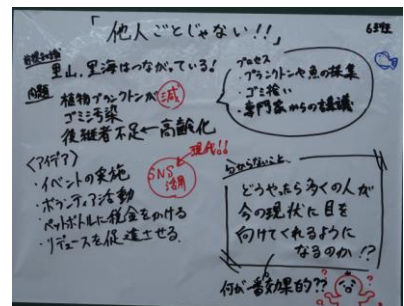 「他人ごとじゃない!!」
6班
前提知識
里山、里海はつながっている!
問題
植物プランクトンが減
ゴミ汚染
後継者不足←高齢化
プロセス
・プランクトンや魚の採集
・ゴミ拾い
・専門家からの講義
〈アイデア〉
現代!!
SNS
活用
・イベントの実施
・ボランティア活動
・ペットボトルに税金をかける
・リデュースを促進させる
分からないこと
どうやったら多くの人が
今の現状に目を
向けてくれるように
なるのか!?
何が一番効果的??